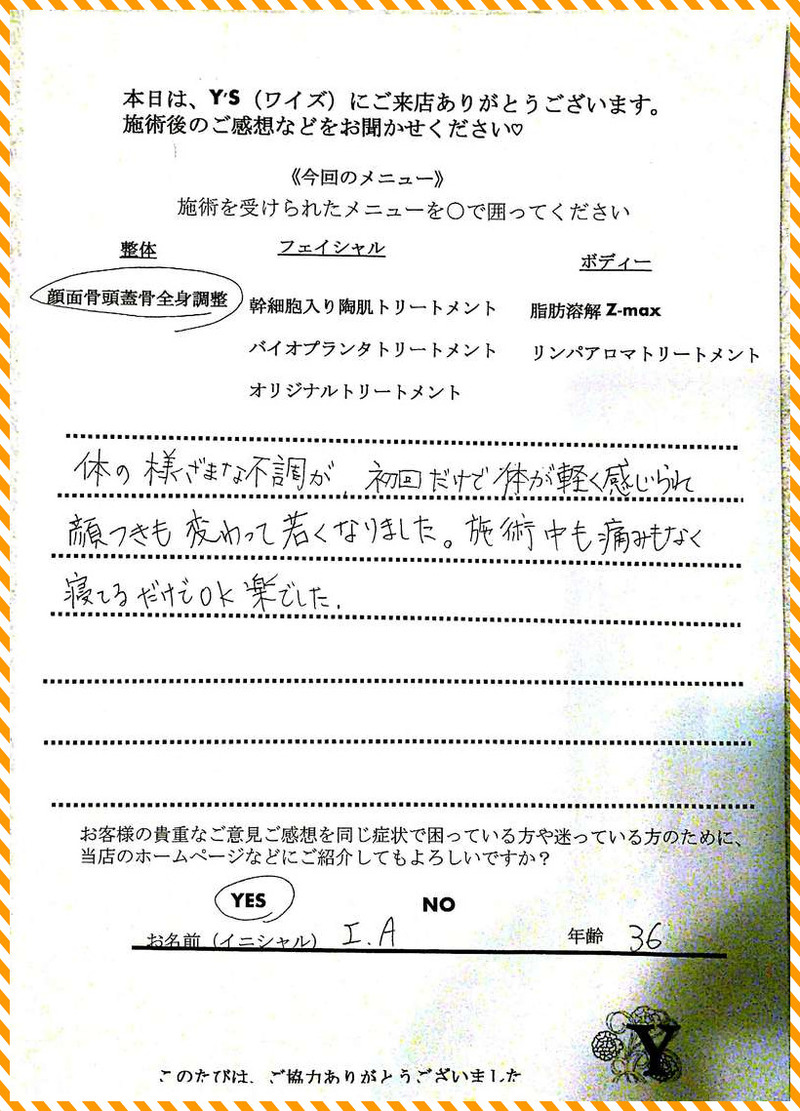 本日は、Y'S（ワイズ）にご来店ありがとうございます。
施術後のご感想などをお聞かせください♡
《今回のメニュー》
施術を受けられたメニューを〇で囲ってください
整体
フェイシャル
ボディー
顔面骨頭蓋骨全身調整
幹細胞入り陶肌トリートメント
脂肪溶解 Z-max
バイオプランタトリートメント
リンパアロマトリートメント
オリジナルトリートメント
体の様ざまな不調が、初回だけで体が軽く感じられ
顔つきも変わって若くなりました。施術中も痛みもなく
寝てるだけでOK楽でした.
お客様の貴重なご意見ご感想を同じ症状で困っている方や迷っている方のために、
当店のホームページなどにご紹介してもよろしいですか？
YES NO
お名前（イニシャル） I.A 年齢 36
Y
このたびは、ご協力ありがとうございました